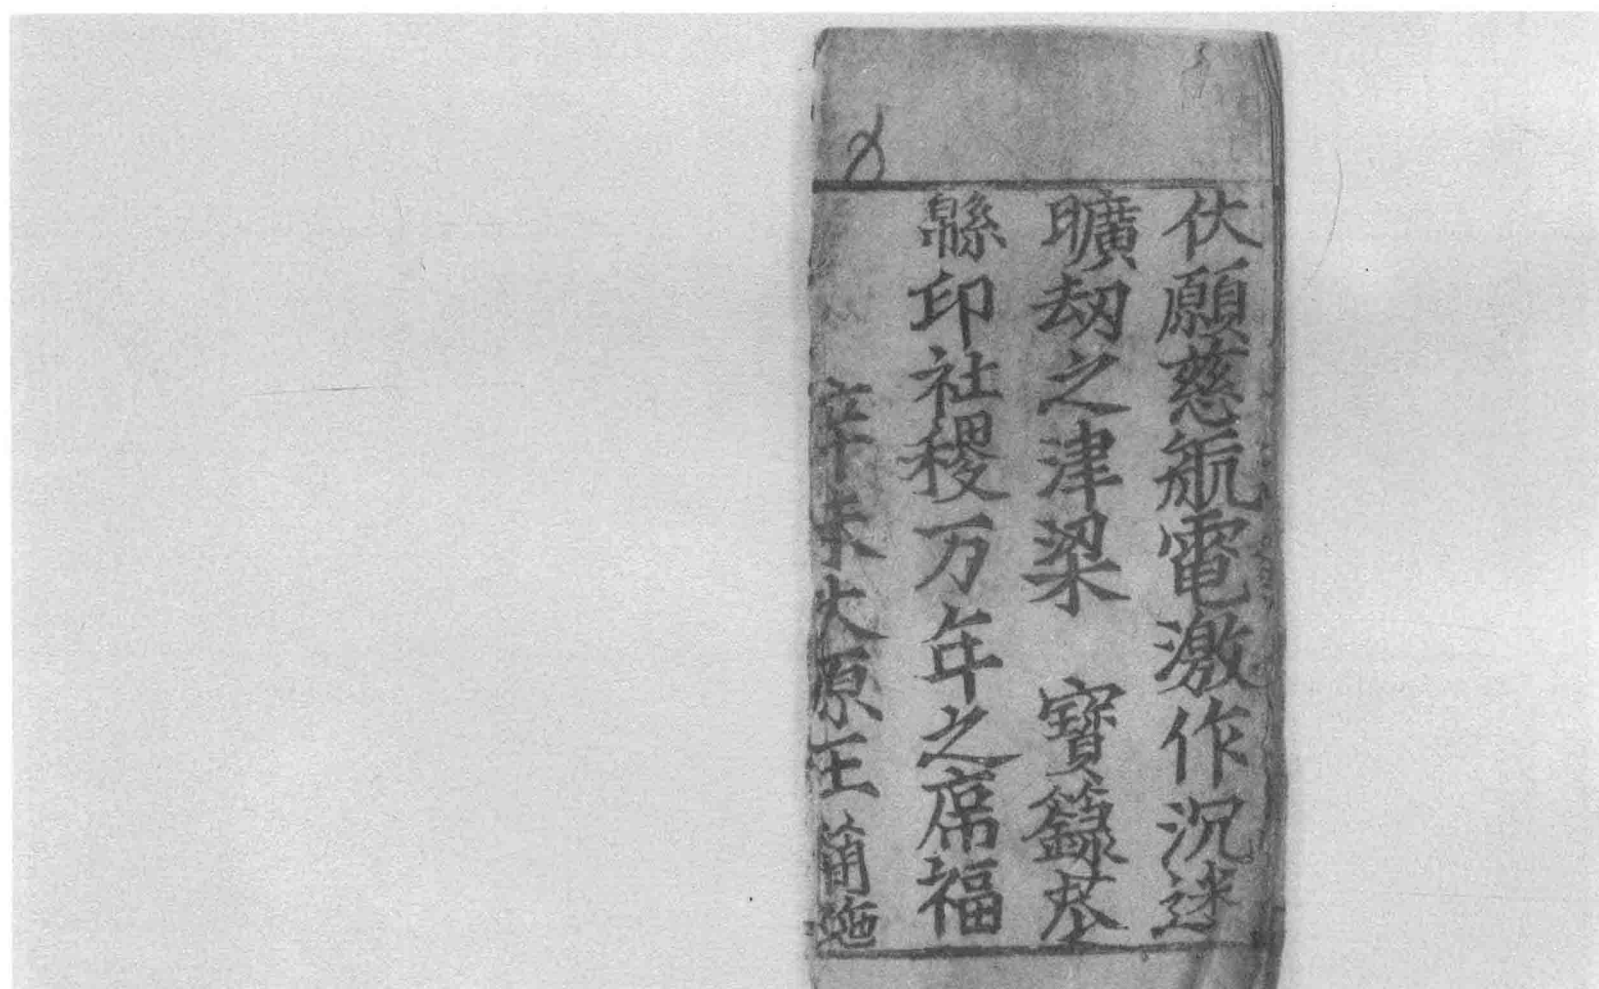 伏願慈航電激作沉迷
曠刼之津梁 寶籙基
緜印社稷万年之席福
辛未太原王蕳施